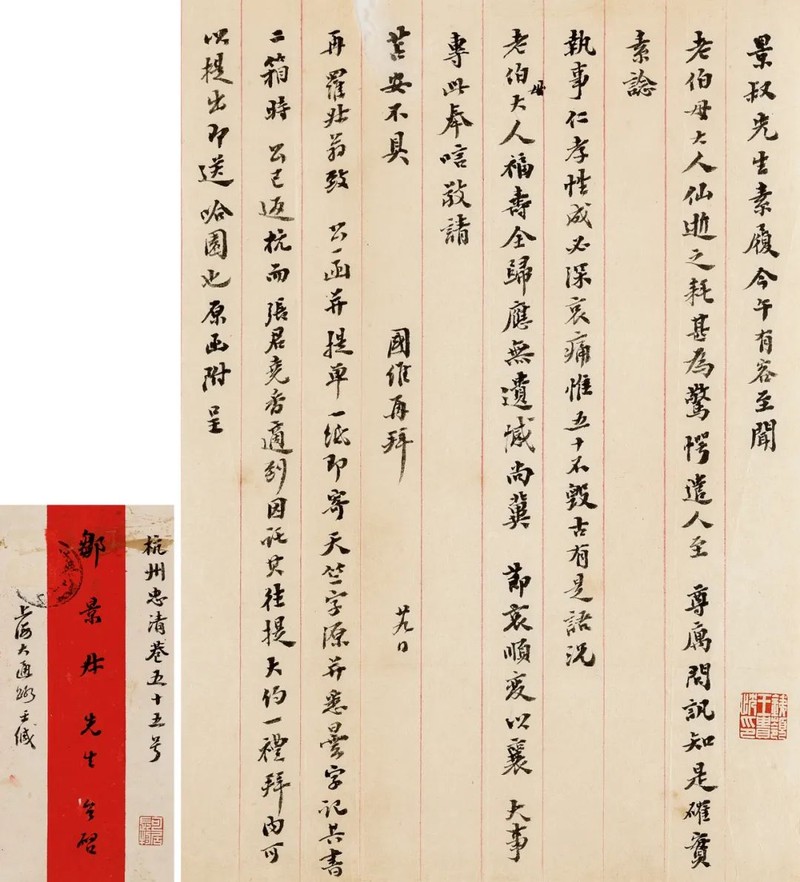 景叔先生素履今午有客至聞
老伯母大人仙逝之耗甚為驚愕遣人至 尊属問訊知是確實
素諗
執事仁孝性成必深哀痛惟五十不毀古有是語況
老伯母大人福壽全歸應無遺憾尚冀 節哀順变以襄 大事
專此奉唁敬請
苫安不具
國維再拜 廿九日
再羅叔翁致 公一函并提单一纸即寄天竺字源并悉曇字記共書
二箱時 公已返杭而張君堯香適到因託其往提大約一禮拜内可
以提出即送哈園也原函附呈
杭州忠清巷五十五号
鄒景叔先生 台啓
上海大通路王缄